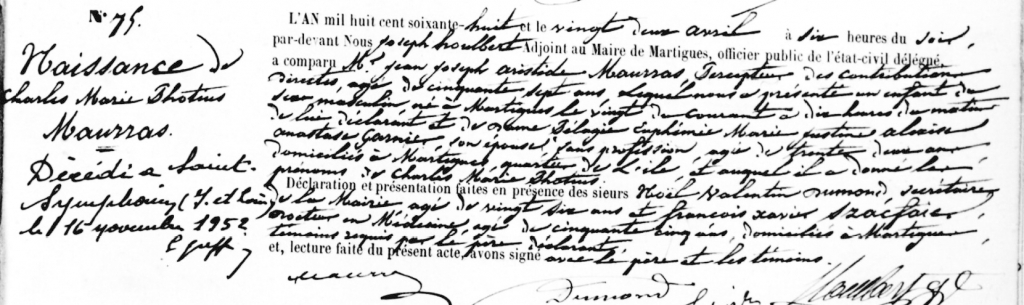 N° 75.
Naissance de
Charles Marie Photius
Maurras.
Décédé à Saint-
Symphorien (I. et Loire)
le 16 novembre 1952
L'AN mil huit cent soixante-huit et le vingt deux avril à six heures du soir,
par-devant Nous Joseph houlbert Adjoint au Maire de Martigues, officier public de l'état-civil délégué,
a comparu Mr jean joseph aristide Maurras, Percepteur des contributions
directes, agé de cinquante sept ans, lequel nous a présenté un enfant du
sexe masculin, né à Martigues le vingt du courant à dix heures du matin
de lui déclarant et de dame Pélagie Euphémie Marie justine aloïse
anastase Garnier, son épouse, sans profession, agée de trente deux ans
domiciliés à Martigues, quartier de l'ile, et auquel il a donné les
prénoms de Charles Marie Photius.
Déclaration et présentation faites en présence des sieurs Noël Valentin Dumond, secrétaire
de la Mairie agé de vingt six ans et françois xavier
Docteur en Médecine, agé de cinquante cinq ans, domiciliés à Martigues,
témoins requis par le père déclarant,
et, lecture faite du présent acte, avons signé avec le père et les témoins.
Maurras Dumond Houlbert